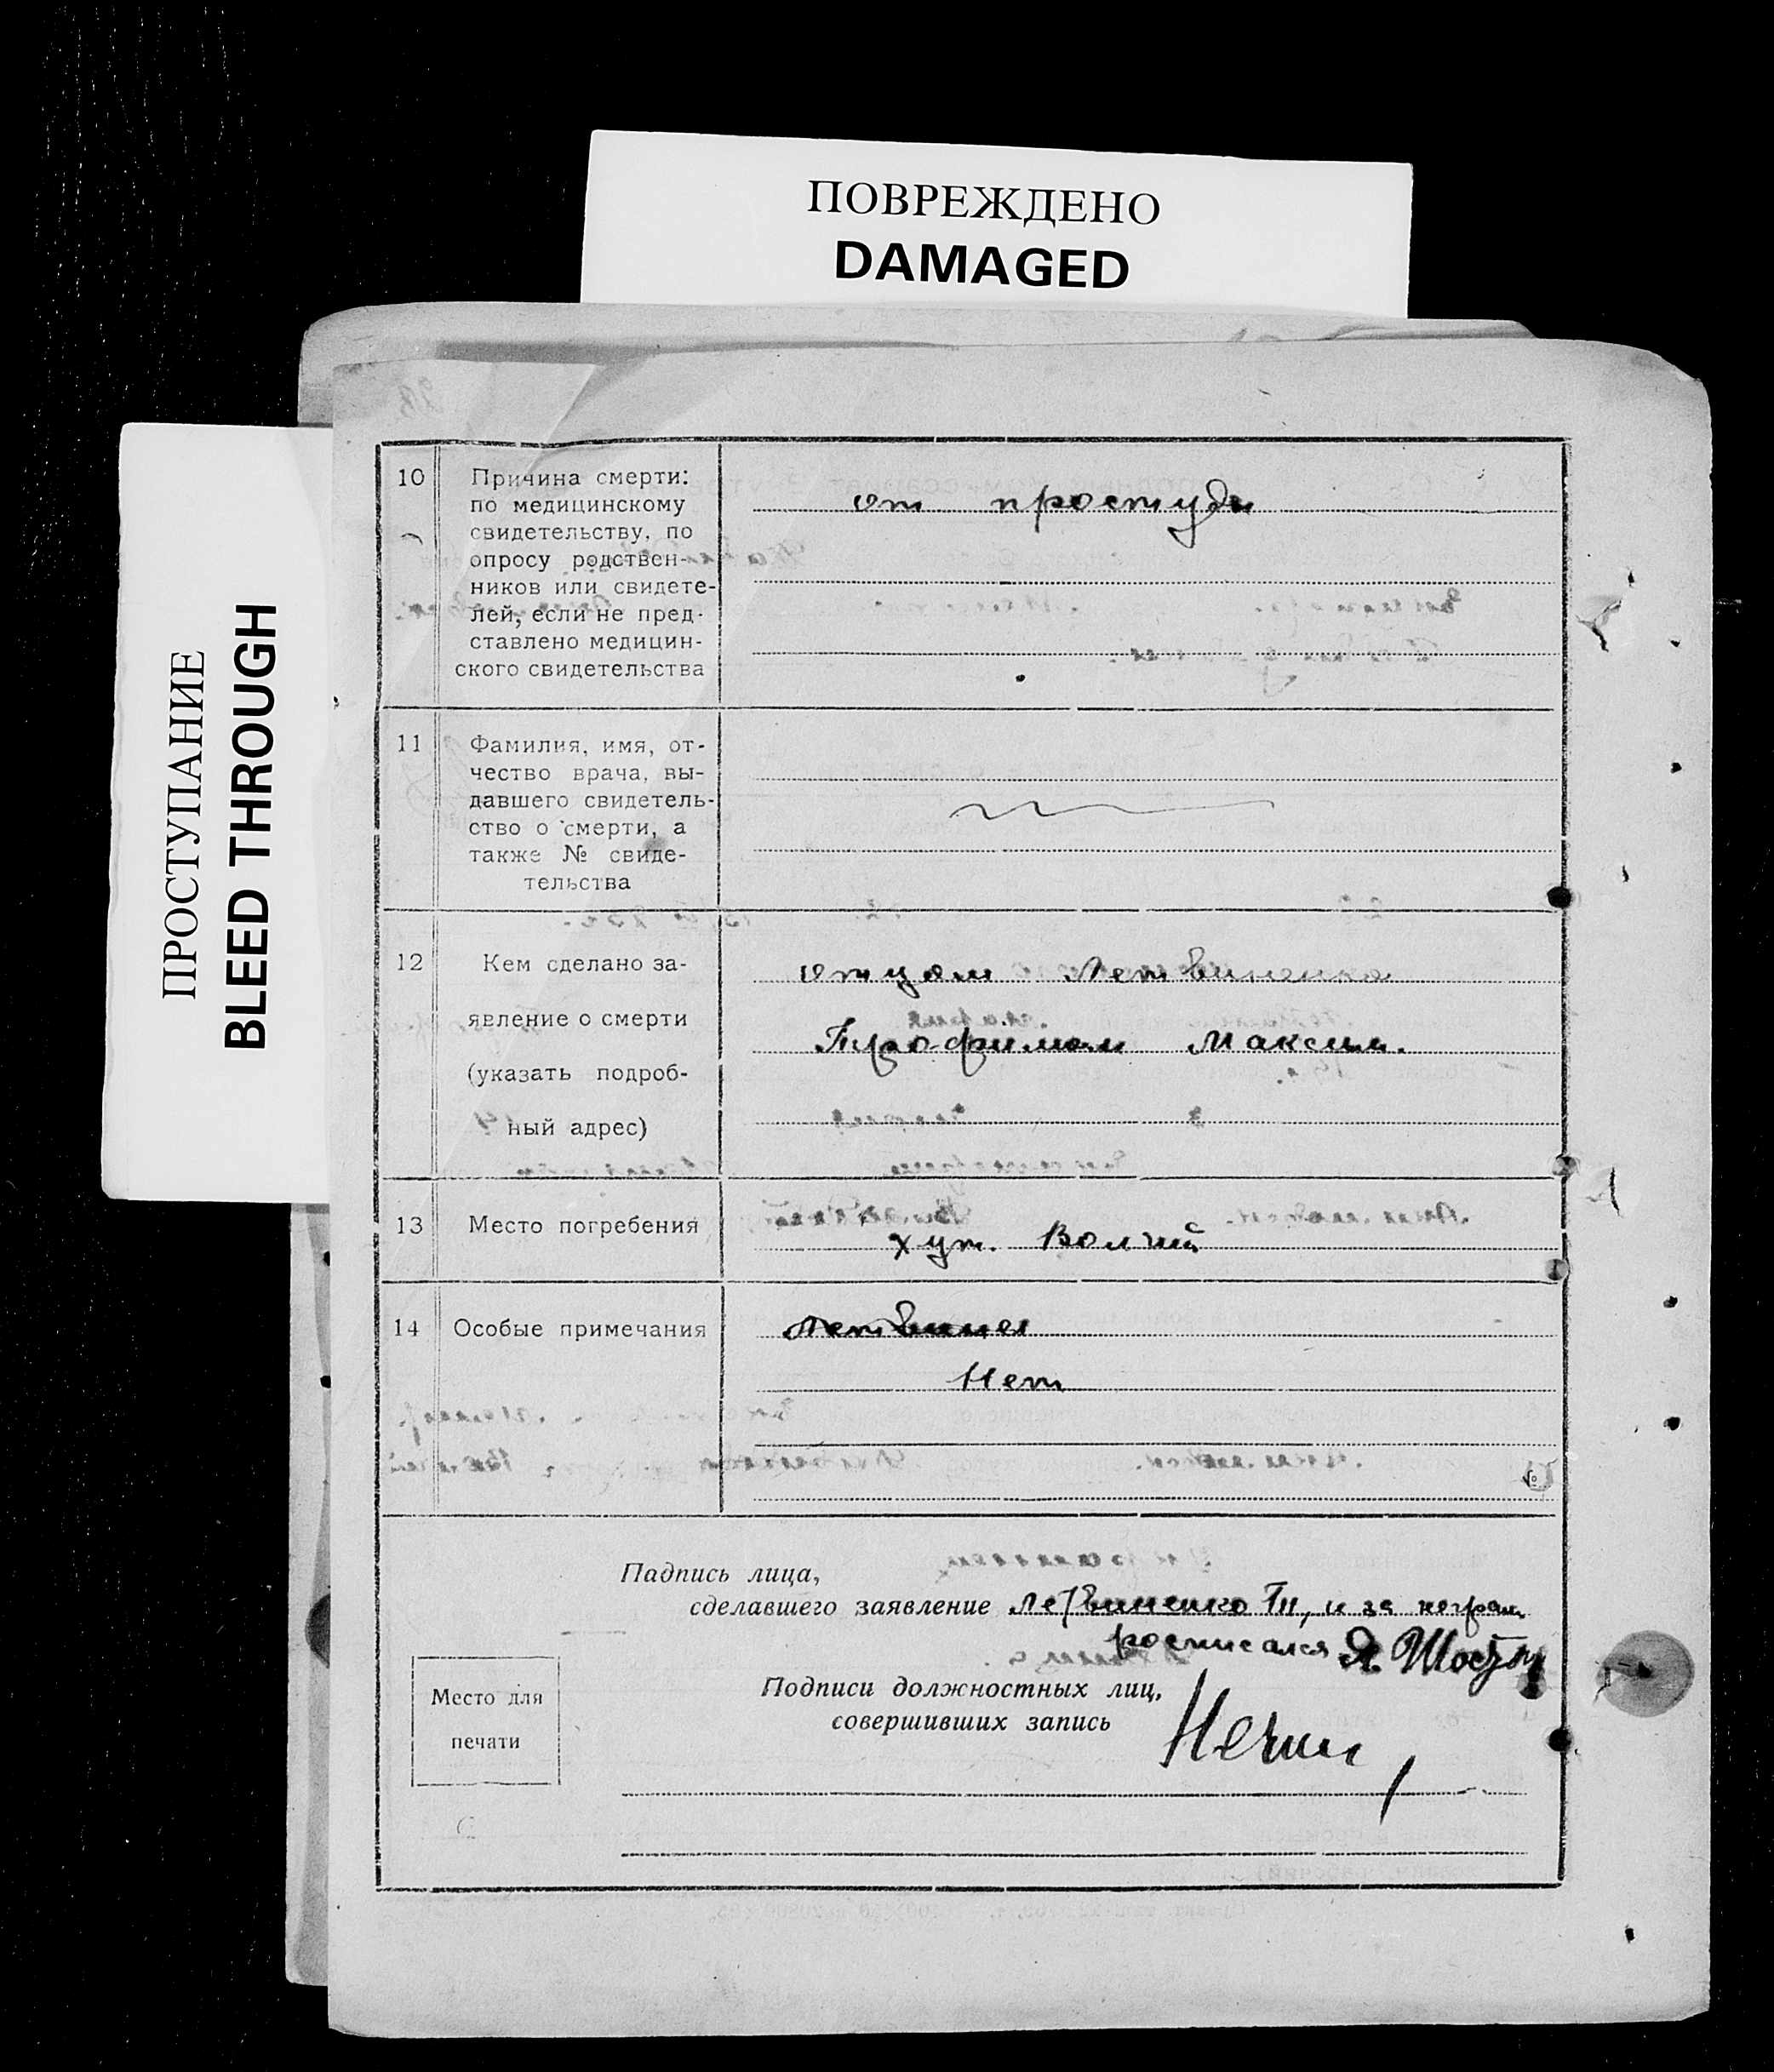 ПОВРЕЖДЕНО
DAMAGED
ПРОСТУПАНИЕ
BLEED THROUGH
10
Причина смерти:
по медицинскому
свидетельству, по
опросу родствен-
ников или свидете-
лей, если не пред-
ставлено медицин-
ского свидетельства
от простуды
11
Фамилия, имя, от-
чество врача, вы-
давшего свидетель-
ство о смерти, а
также № свиде-
тельства
12
Кем сделано за-
явление о смерти
(указать подроб-
ный адрес)
отцом Летвиненко
Трофимом Максим.
13
Место погребения
хут. Волчий
14
Особые примечания
Летвинен
Нет
Падпись лица,
сделавшего заявление Летвиненко Тп, и за неграм
росписался Я
Подписи должностных лиц,
совершивших запись
Место для
печати